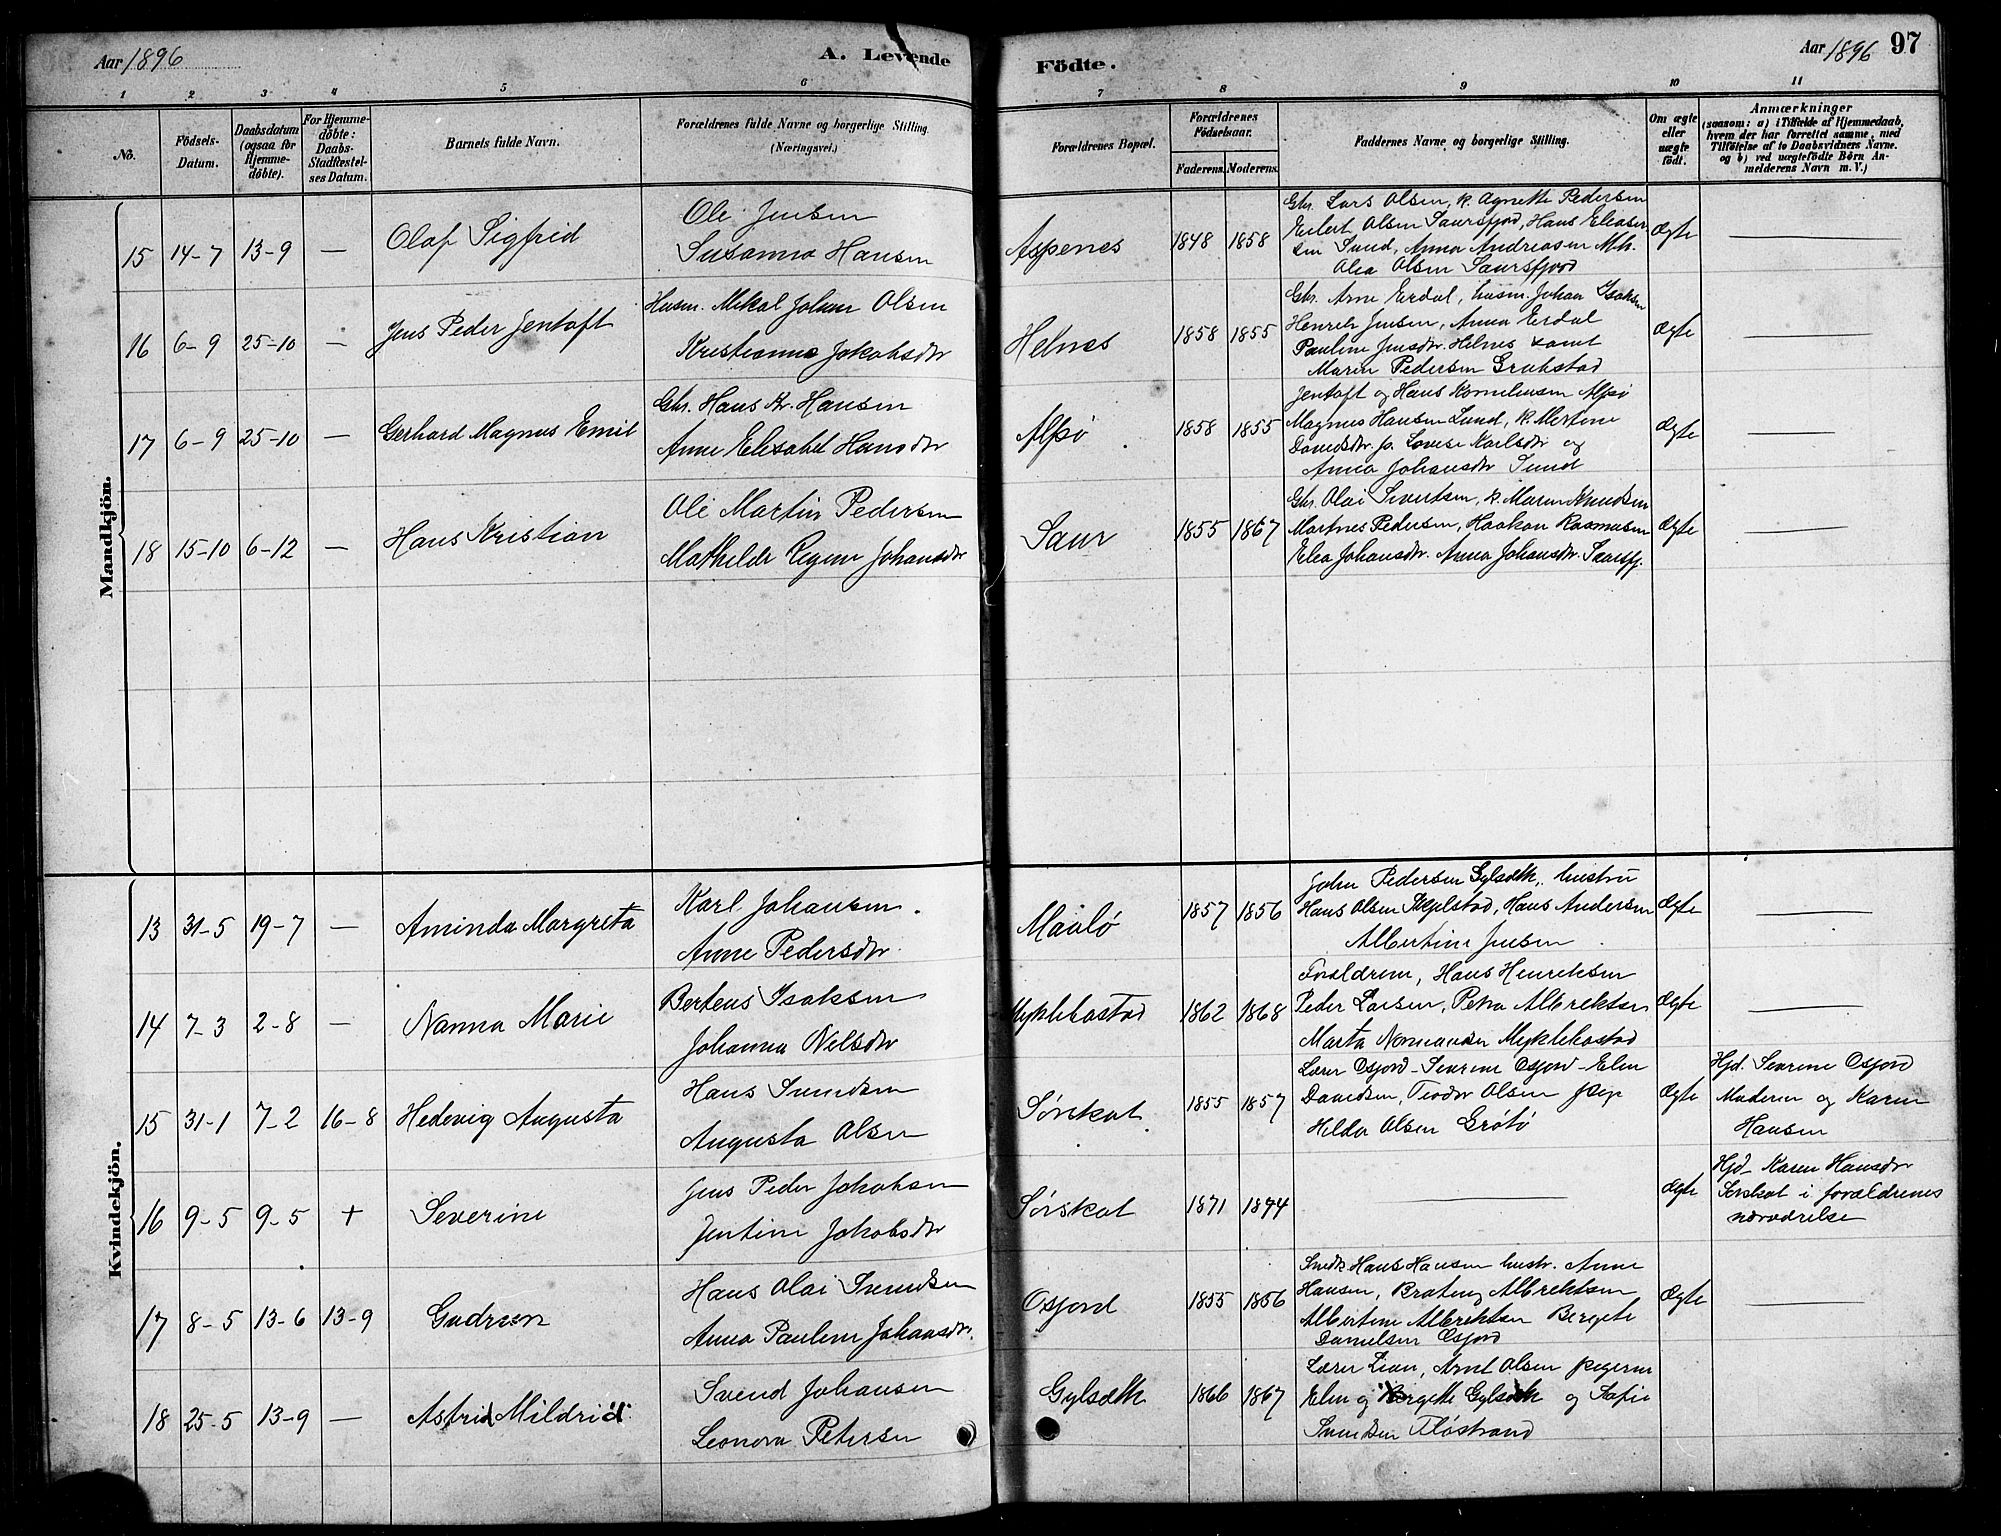 Aar 1896
A. Levende
Födte.
Aar 1896 97
1 2 3 4 5 6 7 8 9 10 11
No.
Födsels-
Datum.
Daabsdatum
(ogsaa for
Hjemme-
döbte).
For Hjemme-
döbte:
Daabs-
Stadfæstel-
ses Datum.
Barnets fulde Navn.
Forældrenes fulde Navne og borgerlige Stilling.
(Næringsvei.)
Forældrenes Bopæl.
Forældrenes
Födselsaar.
Faderens. Moderens.
Faddernes Navne og borgerlige Stilling.
Om ægte
eller
uægte
født.
Anmærkninger
(saasom: a) i Tilfælde af Hjemmedaab,
hvem der har forrettet samme, med
Tilföielse af to Daabsvidners Navne.
og b) ved uægtefödte Börn An-
melderens Navn m. V.)
Mandkjön.
15 14-7 13-9 — Olaf Sigfrid
Ole Jensen
Susanna Hansen
Aspenes 1848 1858
Gbr. Lars Olsen, k. Agnette Pedersen
Eilert Olsen Saursfjord, Hans Eleaser
sen Sund, Anna Andreasen
Olea Olsen Saursfjord
Ægte —
16 6-9 25-10 — Jens Peder Jentoft
Husm. Mikal Johan Olsen
Kristianna Jakobsdr
Helnes 1858 1855
Gbr. Arne Eerdal, husm. Johan Isaksen
Henrik Jensen, Anna Eerdal
Pauline Jensdr. Helnes samt
Maren Pedersen
Ægte —
17 6-9 25-10 — Gerhard Magnus Emil
Gbr. Hans Kr. Hansen
Anne Elisabet Hansdr
Alpø 1858 1855
Jentoft og Hans Korneliussen Alpø
Magnus Hansen Lund, k. Mertine
Davidsdr p. Lovise Karlsdr og
Anna Johansdr Sund
Ægte —
18 15-10 6-12 — Hans Kristian
Ole Martin Pedersen
Mathilde Johansdr
Saur 1855 1867
Gbr. Olai Sivertsen, k. Maren Knudsen
Martnes Pedersen, Haakon Rasmusen
Elea Johansdr. Anna Johansdr.
Ægte —
Kvindekjön.
13 31-5 19-7 — Aminda Margreta
Karl Johansen
Anne Pedersdr
Maulø 1857 1856
John Pedersen Gylseth, hustru
Hans Olsen, Hans Andersen
Albertine Jensen
Ægte —
14 7-3 2-8 — Nanna Marie
Berteus Isaksen
Johanna Nelsdr
Myklebostad 1862 1868
Forældrene, Hans Henriksen
Peder Larsen, Petra Albrektsen
Marta Normansen Myklebostad
Ægte —
15 31-1 7-2 16-8 Hedevig Augusta
Hans Svendsen
Augusta Olsen
Sørskot 1855 1857
Lærer Osfjord - Severine Osfjord - Elen
Davidsen, Teodor Olsen
Hilda Olsen Grøtø
Ægte
Hjd. Severine Osfjord
Moderen og Karen
Hansen
16 9-5 9-5 + Severine
Jens Peder Jakobsen
Jentine Jakobsdr
Sørskot 1871 1874
—
Ægte
Hjd. Karen Hansdr
Sørskot i forældrenes
nærværelse
17 8-5 13-6 13-9 Gudrun
Hans Olai Svendsen
Anna Pauline Johansdr.
Osfjord 1855 1856
Smedk. Hans Hansen hustr. Anne
Hansen, Albrektsen
Albertine Albrektsen Bergete
Danielsen Osfjord
Ægte —
18 25-5 13-9 — Astrid Mildrid
Svend Johansen
Leonora Petersen
Gylseth 1866 1867
Lærer Lian, Arnt Olsen pigerne
Elen og Bergette Gylseth og Sofie
Svendsen Fløstrand